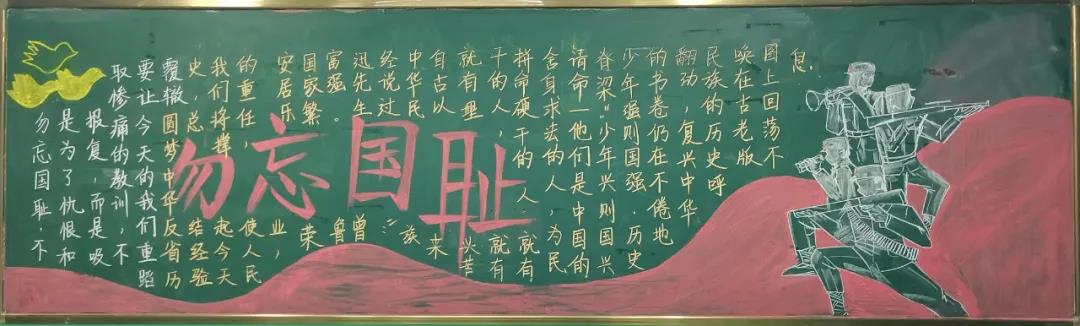 勿忘国耻
勿忘国耻.不
是为了仇恨和
报复,而是吸
取惨痛的教训,不
要让今天的我们重蹈
覆辙圆梦中华反省历
史,总结经验
我们将撑起今天
的重任,使人民
安居乐业,
国家繁荣
富强。鲁
迅先生曾
经说过"
中华民族
自古以来
就有埋头苦
干的人,就有
拼命硬干的人,就有
舍身求法的人,为民
请命一他们是中国的
脊梁"少年兴则国兴
少年强则国强.历史
的书卷仍在不倦地
翻动,复兴中华
民族的历史呼
唤在古老版
图上回荡不
息.